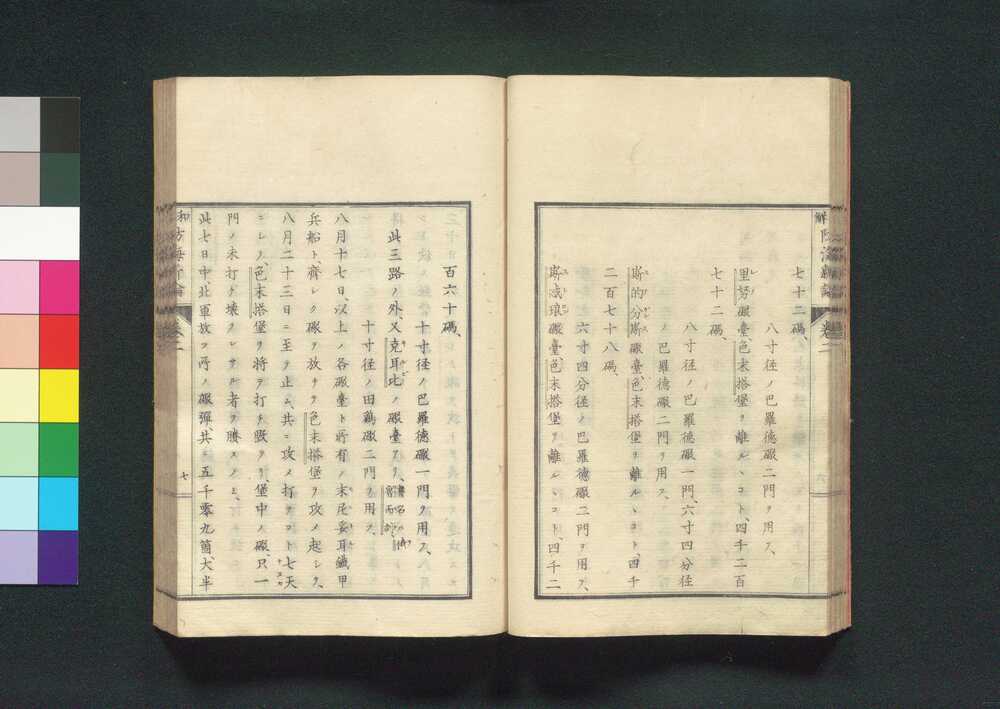 七十二碼、
八寸径ノ巴羅徳礮二門ヲ用フ、
里努礮臺色末搭堡ヲ離ルヽコト、四千二百
七十二碼、
八寸径ノ巴羅徳礮一門、六寸四分径
ノ巴羅徳礮二門ヲ用フ、
斯的分斯礮臺、色末搭堡ヲ離ルヽコト、四千
二百七十八碼、
六寸四分径ノ巴羅徳礮二門ヲ用フ、
斯減琅礮臺、色末搭堡ヲ離ルヽコト、四千二
百六十碼、
十寸径ノ巴羅徳礮一門ヲ用フ、
此三路ノ外、又克耳比ノ礮臺アリ、
十寸径ノ田鶏礮二門ヲ用フ、
八月十七日、以上ノ各礮臺ト所有ノ末尼妥耳鐵甲
兵船ト、齊シク礮ヲ放チ、色末搭堡ヲ攻メ起シ、
八月二十三日ニ至テ止ム、共ニ攻メ打ツコト七天
ニシテ、色末搭堡ヲ将テ打チ毀ケリ、堡中ノ礮、只一
門ノ未打チ壊スレサル者ヲ賸スノミ、
此七日中、北軍放ツ所ノ礮彈、共ニ五千零九箇、大半
七